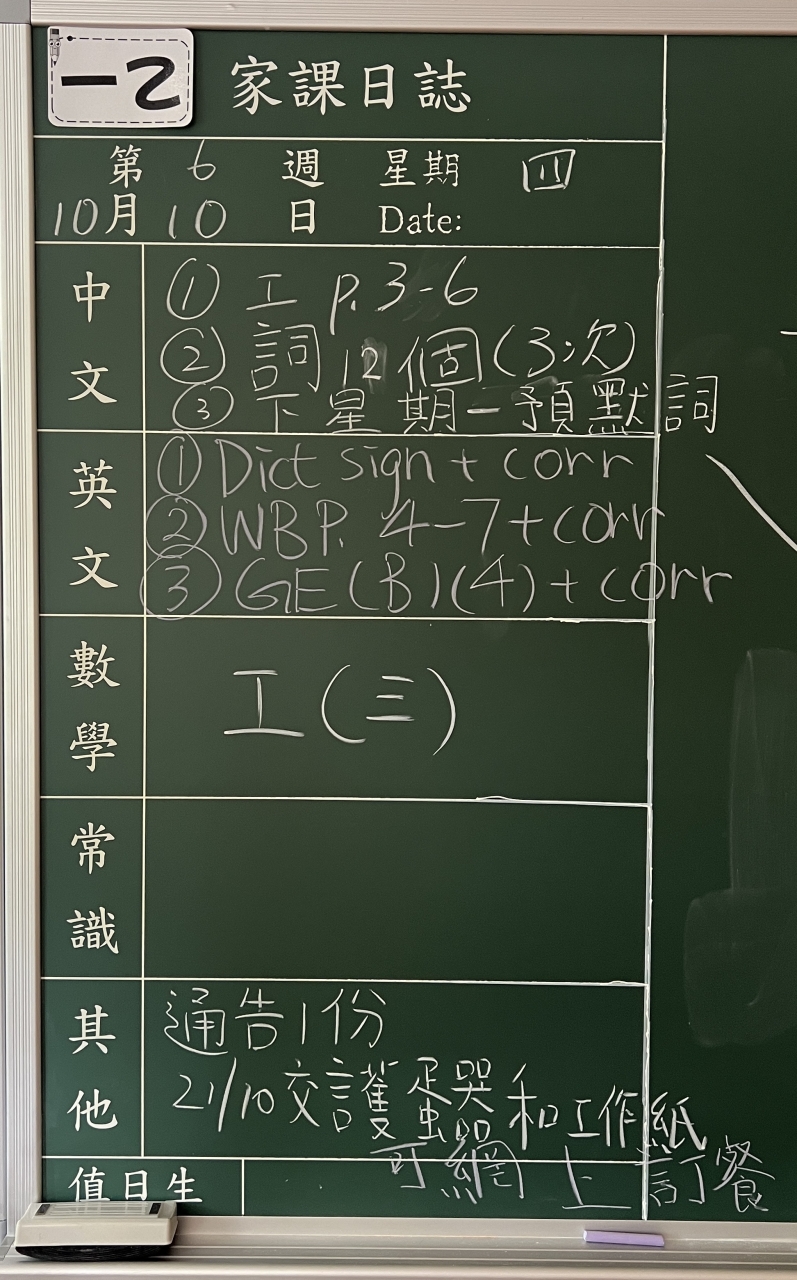 一乙 家課日誌
第 6 週 星期 四
10月 10 日 Date:
中文
① 工 p.3-6
② 詞 12個(3次)
③ 下星期一預默詞
英文
① Dict sign + corr
② WBP. 4-7 + corr
③ GE(B)(4) + corr
數學
工(三)
常識
其他
通告1份
21/10交護蛋器和工作紙
可網上訂餐
值日生